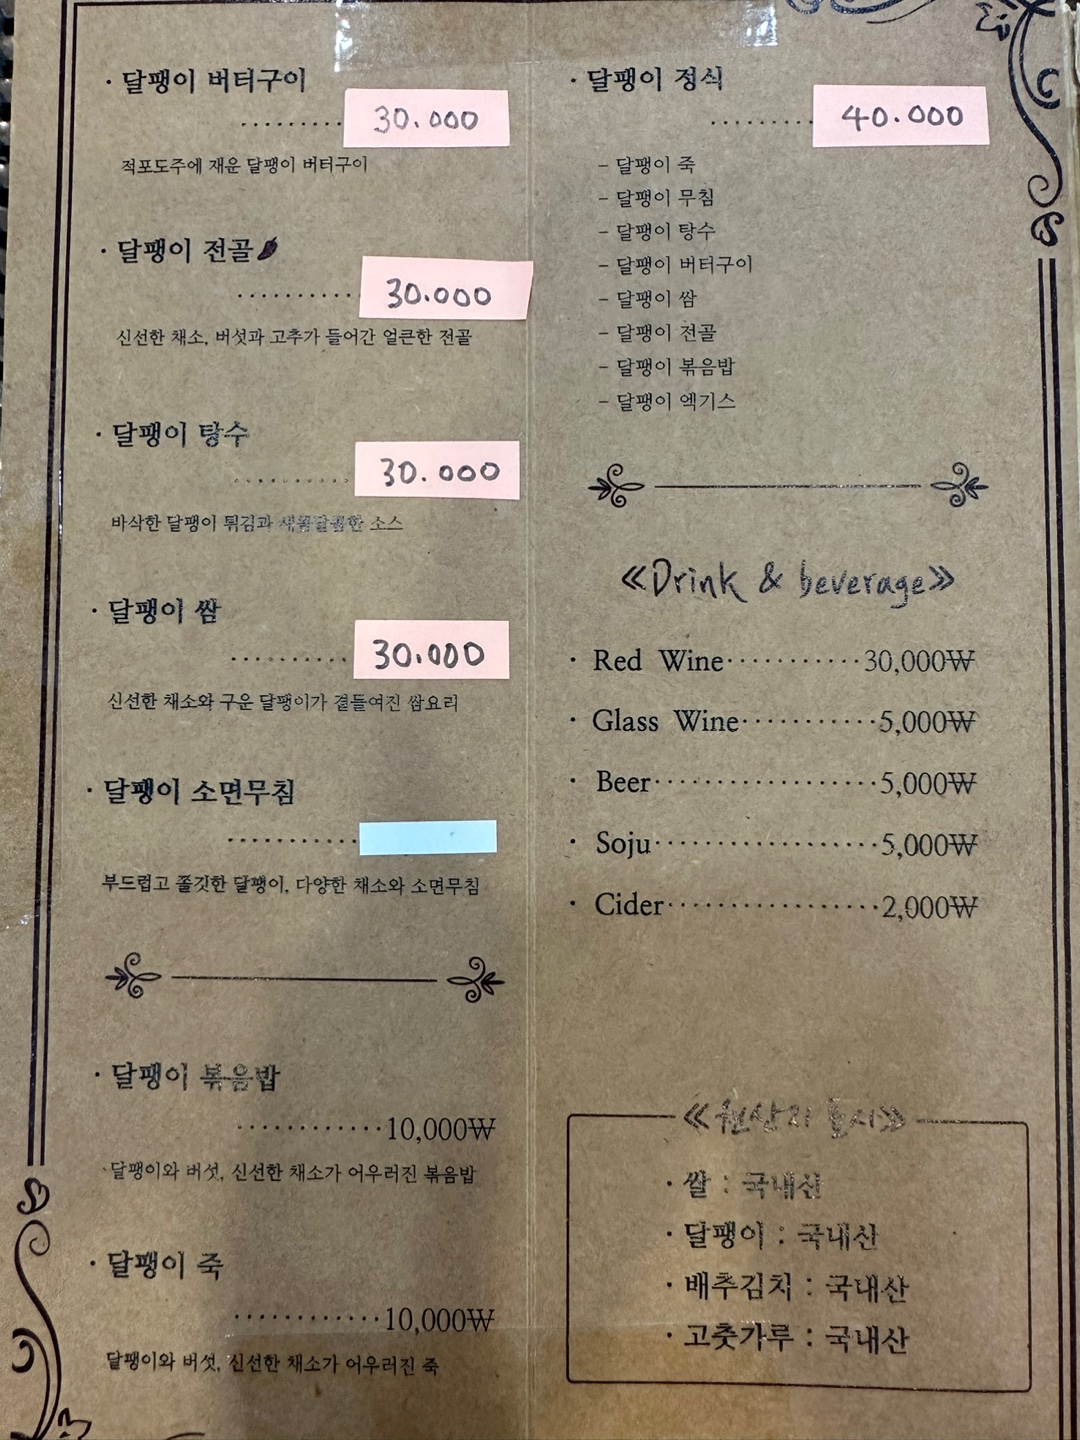 · 달팽이 버터구이
·········· 30.000
적포도주에 재운 달팽이 버터구이
· 달팽이 전골
············ 30.000
신선한 채소, 버섯과 고추가 들어간 얼큰한 전골
· 달팽이 탕수
············ 30.000
바삭한 달팽이 튀김과 새콤달콤한 소스
· 달팽이 쌈
············ 30.000
신선한 채소와 구운 달팽이가 곁들여진 쌈요리
· 달팽이 소면무침
·············
부드럽고 쫄깃한 달팽이, 다양한 채소와 소면무침
· 달팽이 볶음밥
············10,000₩
달팽이와 버섯, 신선한 채소가 어우러진 볶음밥
· 달팽이 죽
············10,000₩
달팽이와 버섯, 신선한 채소가 어우러진 죽
· 달팽이 정식
·········· 40.000
- 달팽이 죽
- 달팽이 무침
- 달팽이 탕수
- 달팽이 버터구이
- 달팽이 쌈
- 달팽이 전골
- 달팽이 볶음밥
- 달팽이 엑기스
≪Drink & beverage≫
· Red Wine···········30,000₩
· Glass Wine···········5,000₩
· Beer··················5,000₩
· Soju··················5,000₩
· Cider·················2,000₩
≪원산지 표시≫
· 쌀 : 국내산
· 달팽이 : 국내산
· 배추김치 : 국내산
· 고춧가루 : 국내산